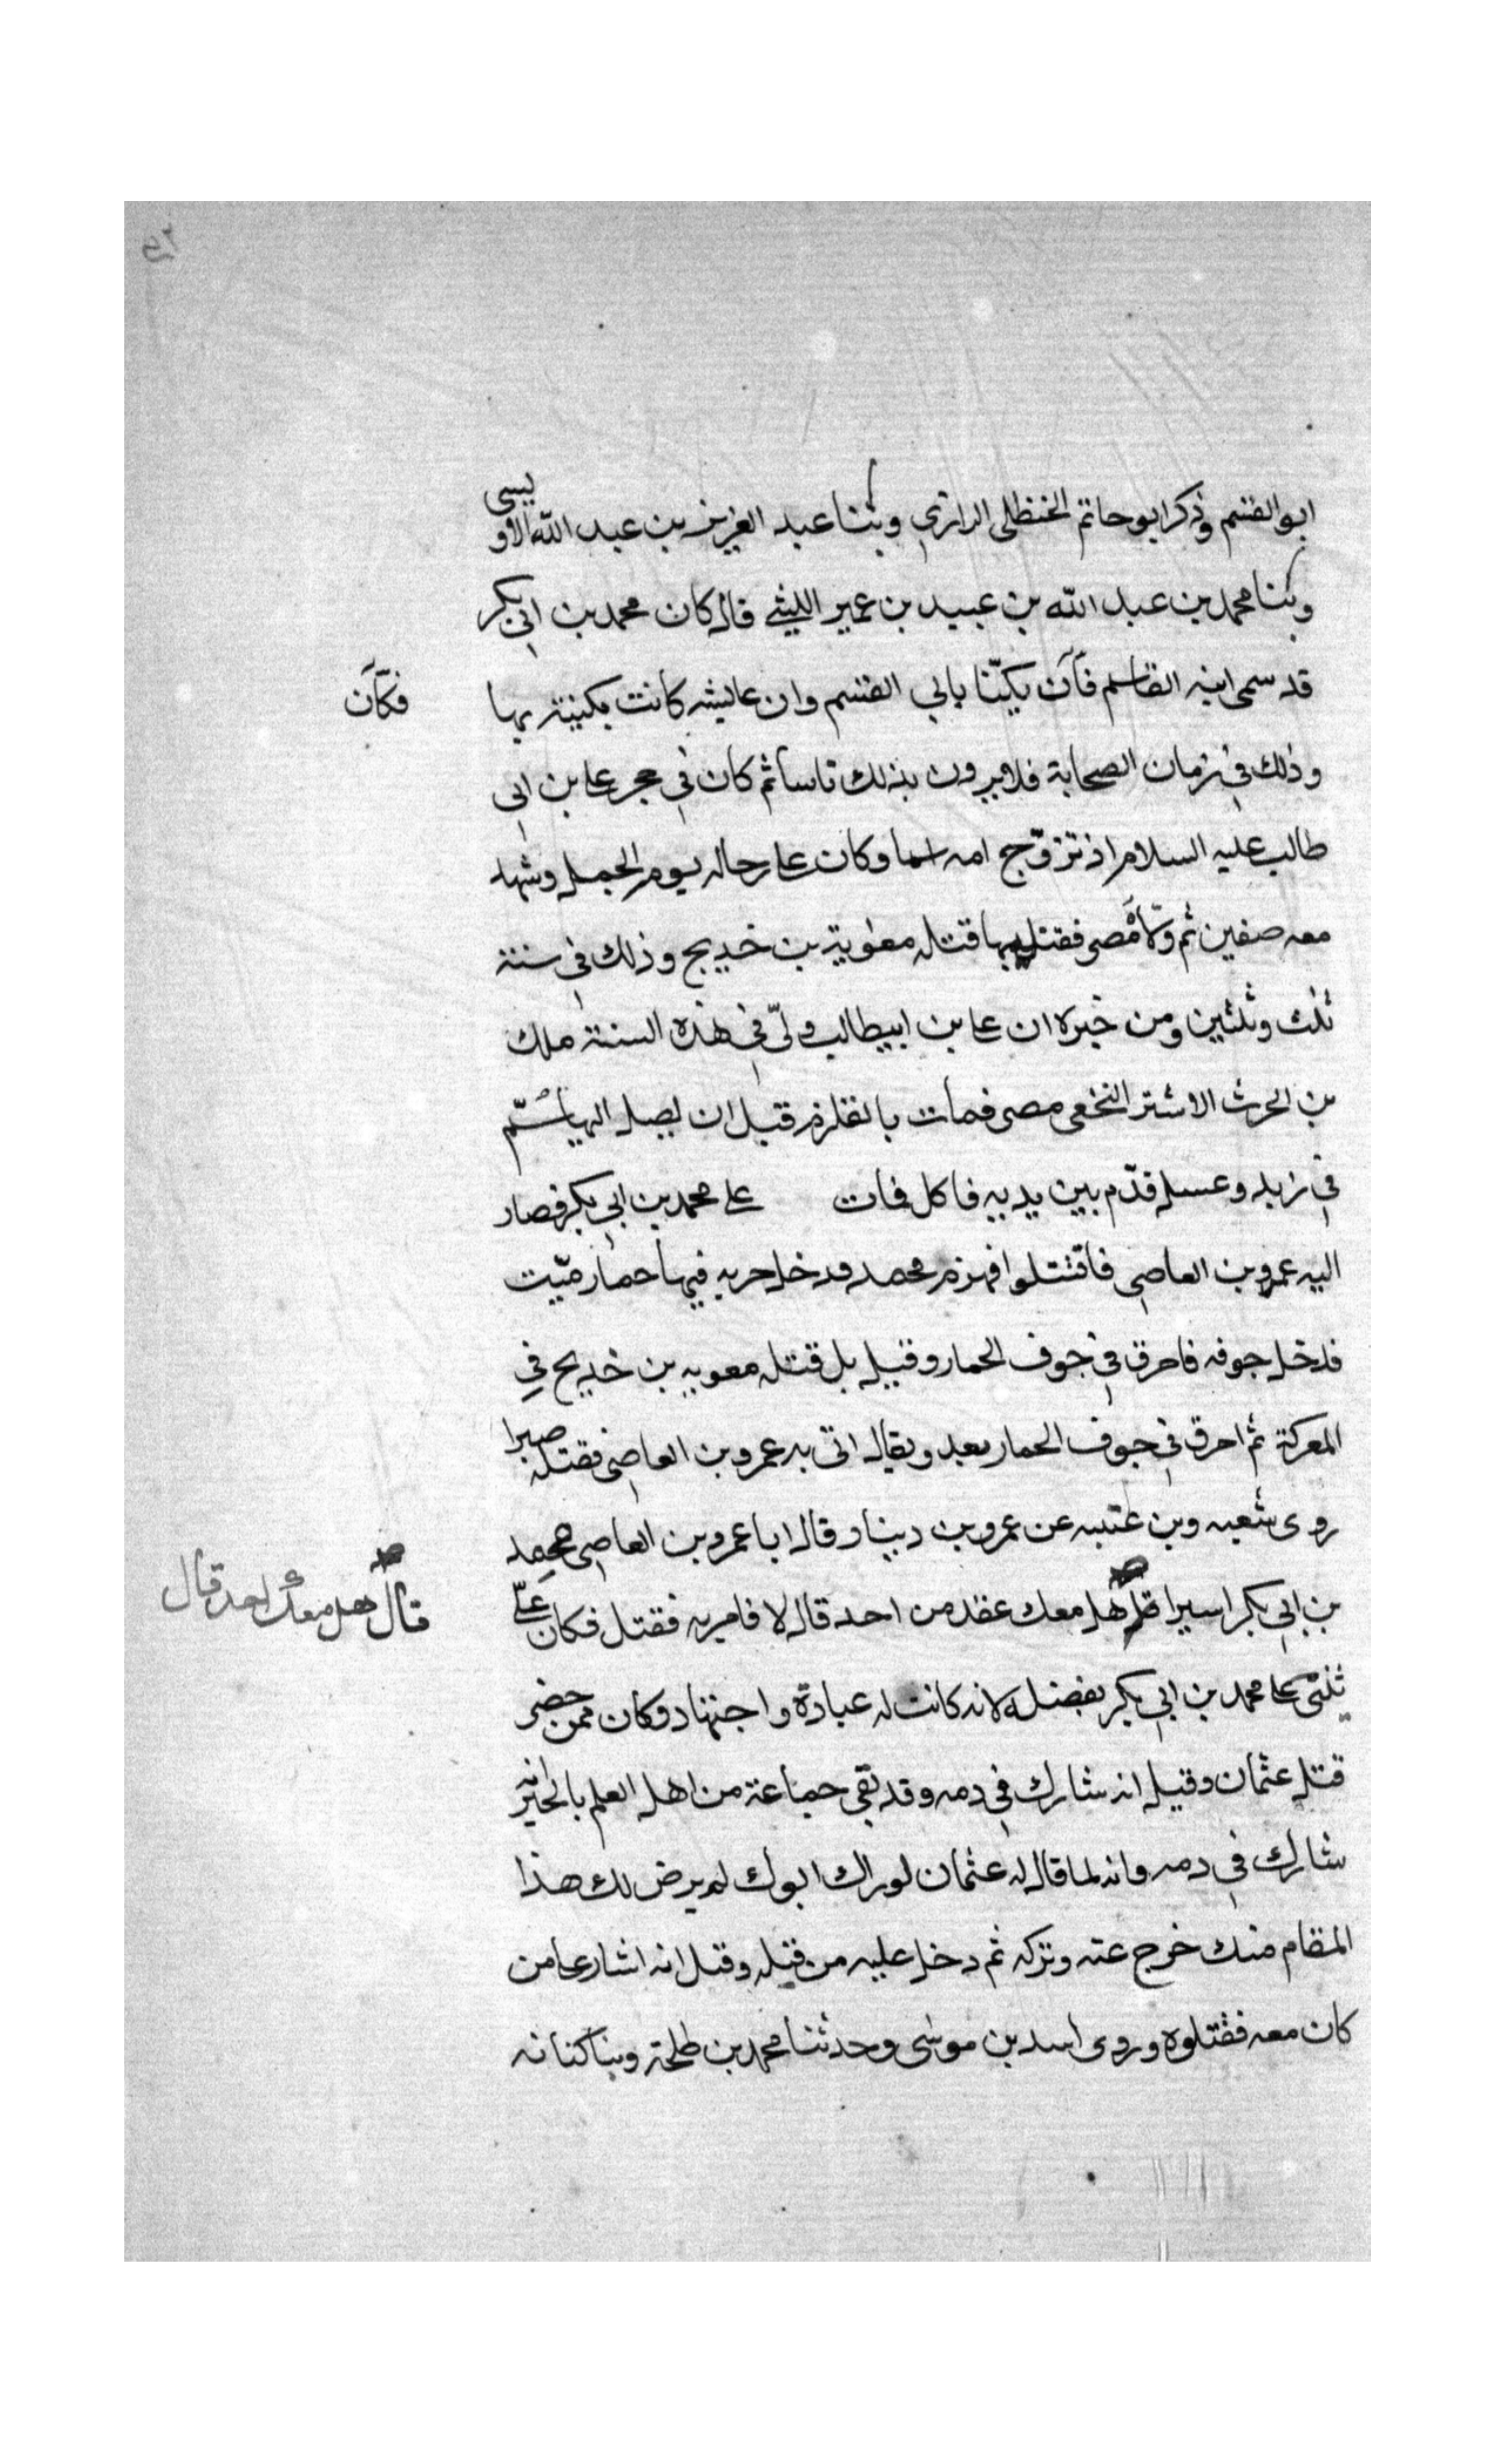 ابو القسم وذكر ابو حاتم الحنظلى الرازي وثنا عبد العزيز بن عبد الله الاو يسى
وثنا محمد بن عبد الله بن عبيد بن عمير الليثي قال كان محمد بن ابي بكر
قد سمى ابنه القاسم فكان يكنّا بابي القسم وان عايشه كانت يكنيته بها
فكان
وذلك في زمان الصحابة فلا يرون بذلك باسا ثم كان في حجر على بن ابى
طالب عليه السلام اذ تزوّج امه اسما وكان على رحاله يوم الجمل وشهد
معه صفين ثم ولّاه مصر فقتل بها قتله معوية بن خديج وذلك في سنة
ثلث وثلثين ومن خبره ان على بن ابيطالب ولّى في هذه السنة ملك
بن الحرث الاشتر النخعى مصر فمات بالقلزم قبل ان يصل اليها سُمّ
في زبد وعسل قدّم بين يديه فاكل فمات على محمد بن ابي بكر فصار
اليه عمرو بن العاصى فاقتتلوا فهزم محمد فدخل خربه فيها حمار ميّت
فدخل جوفه فاحرق في جوف الحمار وقيل بل قتله معويه بن خديج في
المعركة ثم احرق في جوف الحمار بعد ويقال اتى به عمرو بن العاصى فقتله صبرا
روى شعبه وبن عتبه عن عمرو بن دينار قال ابا عمرو بن العاصى محمد
بن ابي بكر اسيرا قال هل معك عقد من احد قال لا فامر به فقتل فكان علىّ
قال هل معك احد قال
يثنى على محمد بن ابي بكر بفضله لانه كانت له عبادة واجتهاد وكان ممن حضر
قتل عثمان وقيل انه شارك في دمه وقد نفى جماعة من اهل العلم بالخبر انه
شارك في دمه وانه لما قال له عثمان لو راك ابوك لم يرض لك هذا
المقام منك خرج عنه وتركه ثم دخل عليه من قتله وقيل انه اشار على من
كان معه فقتلوه وروى اسد بن موسى وحدثنا محمد بن طلحة وبنا كنانه